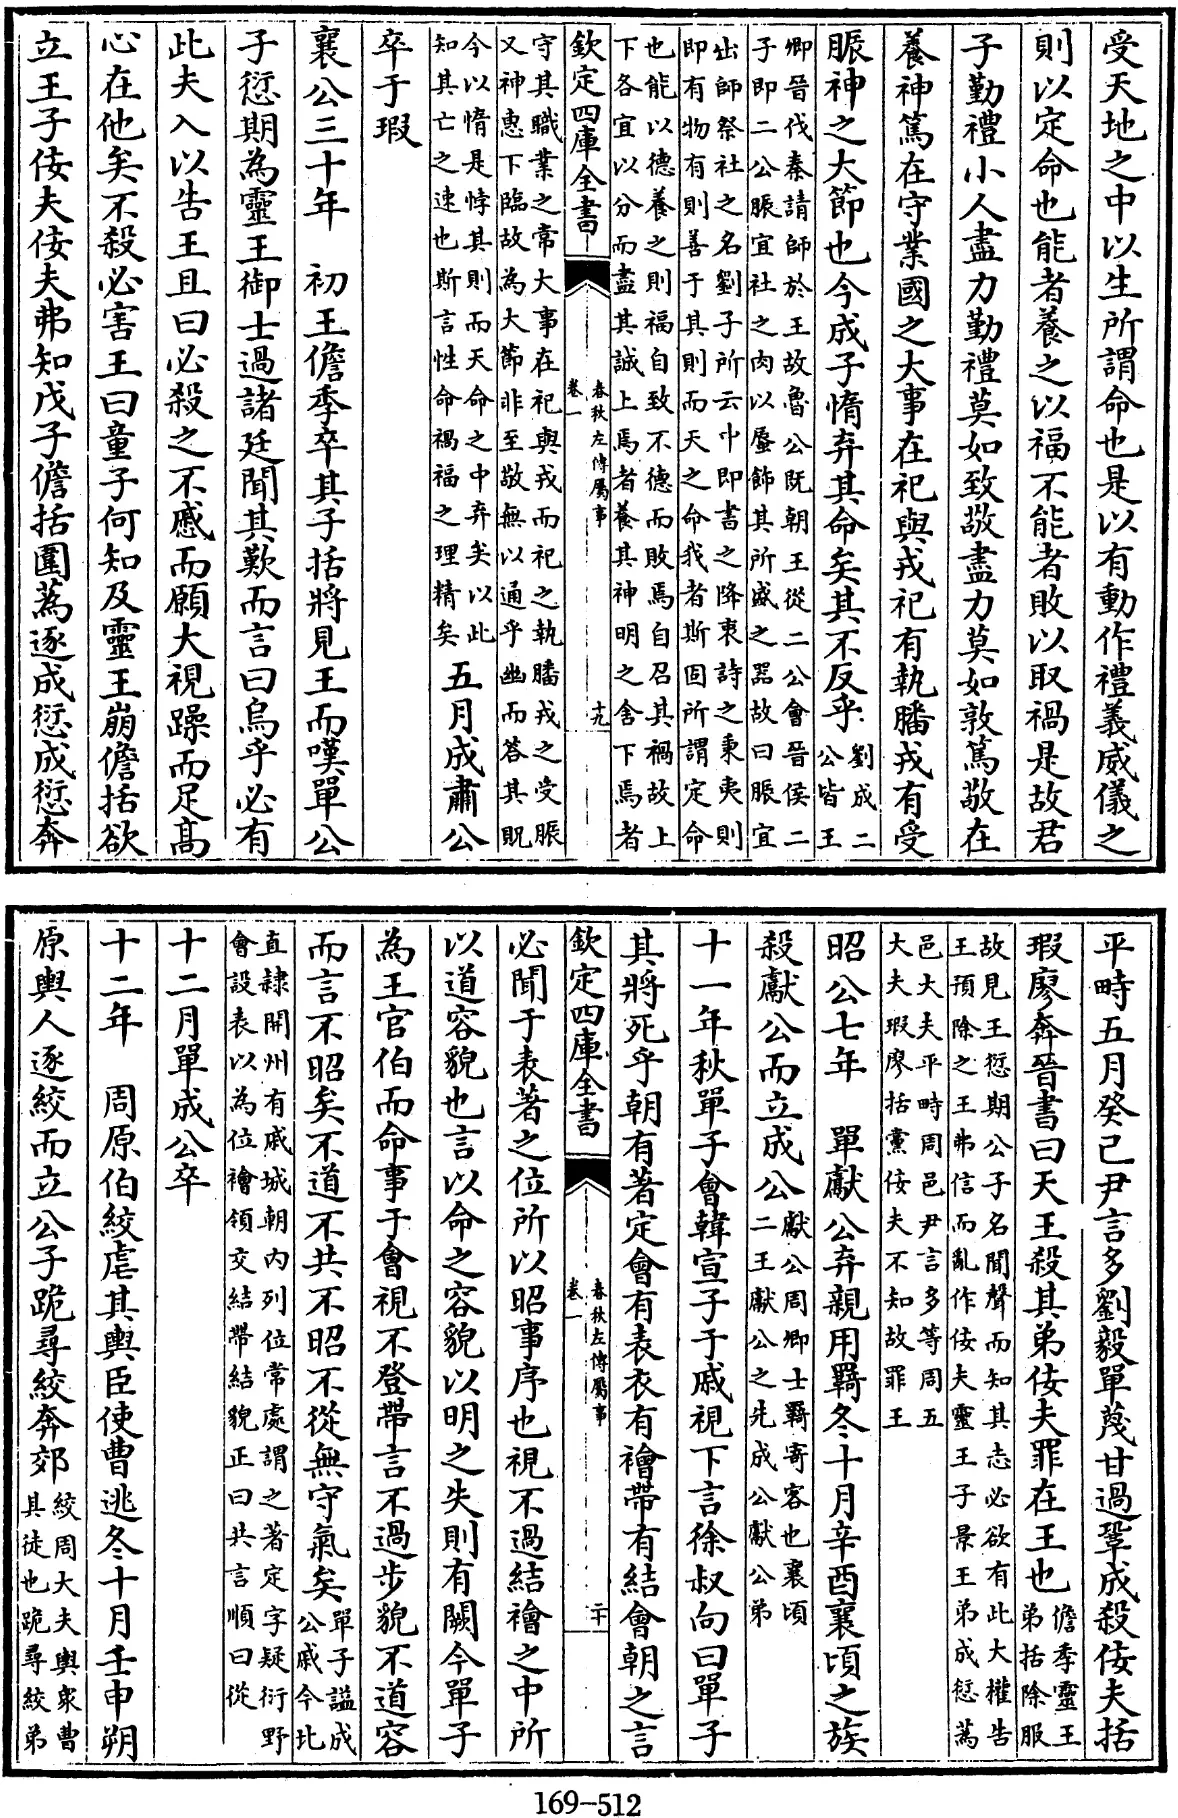 受天地之中以生所謂命也是以有動作禮義威儀之
則以定命也能者養之以福不能者敗以取禍是故君
子勤禮小人盡力勤禮莫如致敬盡力莫如敦篤敬在
養神篤在守業國之大事在祀與戎祀有執膰戎有受
脤神之大節也今成子惰弃其命矣其不反乎劉成二
公皆王
卿晉伐秦請師於王故魯公既朝王從二公會晉侯二
子即二公脤宜社之肉以蜃飾其所盛之器故曰脤宜
出師祭社之名劉子所云中即書之降衷詩之秉夷則
即有物有則善于其則而天之命我者斯固所謂定命
也能以德養之則福自致不德而敗焉自召其禍故上
下各宜以分而盡其誠上焉者養其神明之舍下焉者
欽定四庫全書
春秋左傳屬事
卷一
十九
守其職業之常大事在祀與戎而祀之執膰戎之受脤
又神惠下臨故為大節非至敬無以通乎幽而答其貺
今以惰是悖其則而天命之中弃矣以此
知其亡之速也斯言性命禍福之理精矣
五月成肅公
卒于瑕
襄公三十年　初王儋季卒其子括將見王而嘆單公
子愆期為靈王御士過諸廷聞其歎而言曰烏乎必有
此夫入以告王且曰必殺之不慼而願大視躁而足高
心在他矣不殺必害王曰童子何知及靈王崩儋括欲
立王子佞夫佞夫弗知戊子儋括圍蒍逐成愆成愆奔
平畤五月癸巳尹言多劉毅單蔑甘過鞏成殺佞夫括
瑕廖奔晉書曰天王殺其弟佞夫罪在王也儋季靈王
弟括除服
故見王愆期公子名聞聲而知其志必欲有此大權告
王預除之王弗信而亂作佞夫靈王子景王弟成愆蒍
邑大夫平畤周邑尹言多等周五
大夫瑕廖括黨佞夫不知故罪王
昭公七年　單獻公弃親用羇冬十月辛酉襄頃之族
殺獻公而立成公獻公周卿士羇寄客也襄頃
二王獻公之先成公獻公弟
十一年秋單子會韓宣子于戚視下言徐叔向曰單子
其將死乎朝有著定會有表衣有襘帶有結會朝之言
欽定四庫全書
春秋左傳屬事
卷一
二十
必聞于表著之位所以昭事序也視不過結襘之中所
以道容貌也言以命之容貌以明之失則有闕今單子
為王官伯而命事于會視不登帶言不過步貌不道容
而言不昭矣不道不共不昭不從無守氣矣單子謚成
公戚今北
直隸開州有戚城朝內列位常處謂之著定字疑衍野
會設表以為位襘領交結帶結貌正曰共言順曰從
十二月單成公卒
十二年　周原伯絞虐其輿臣使曹逃冬十月壬申朔
原輿人逐絞而立公子跪尋絞奔郊絞周大夫輿衆曹
其徒也跪尋絞弟
169-512